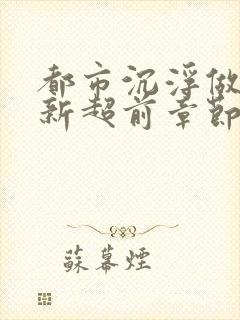 都市沉浮做
新超前章節
蘇暮煙